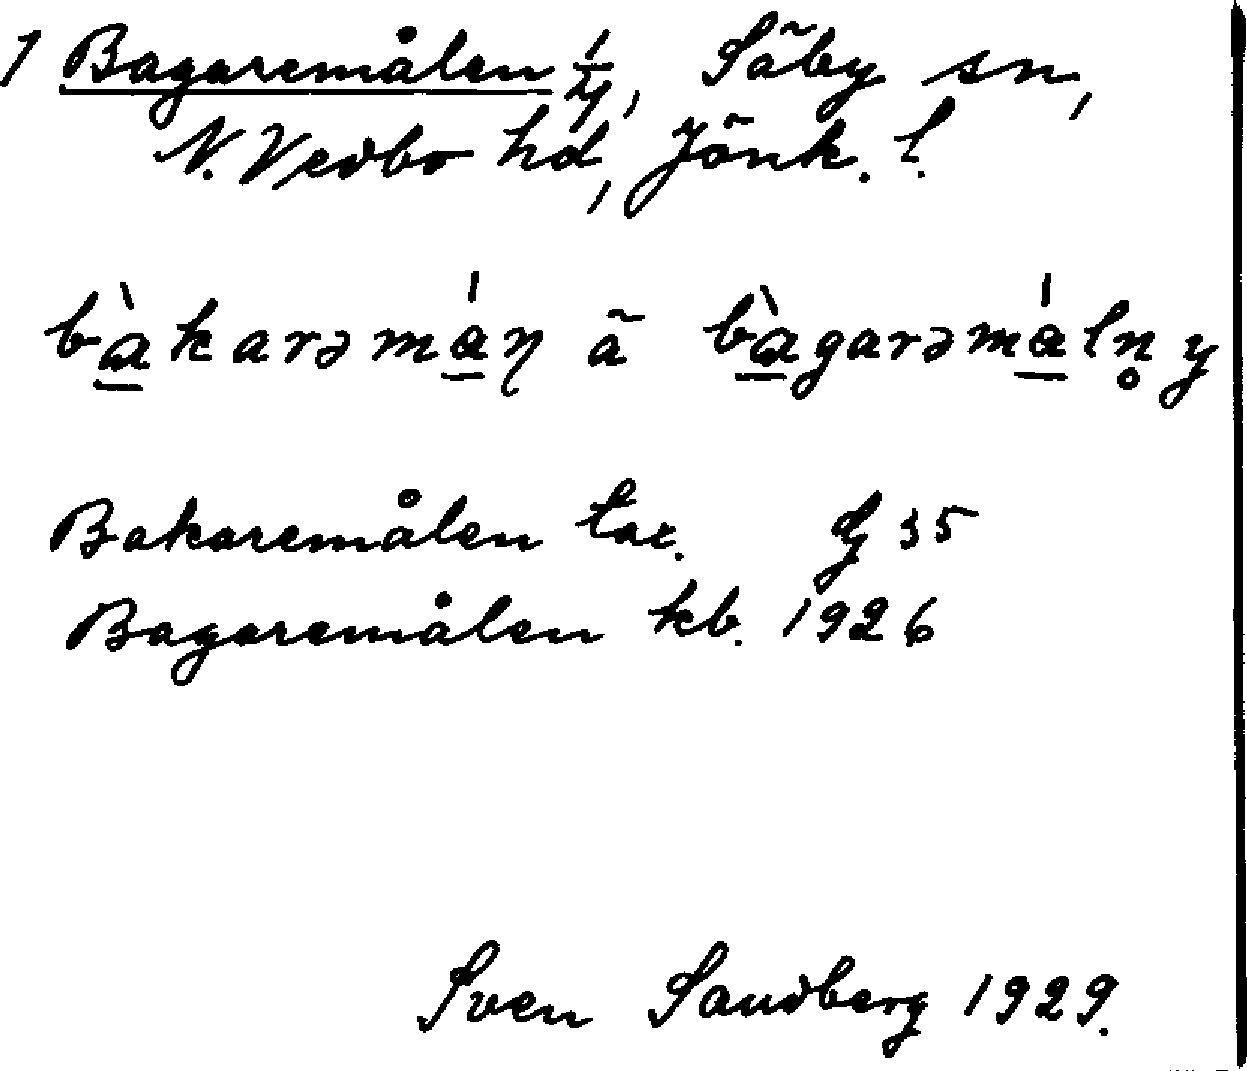 1 Bagaremålen 1/4, Säby sn,
N. Vedbo hd, Jönk. l.
bàkarəmáꞃ ä bàgarəmáln̥ y
Bakaremålen tax. 35
Bagaremålen kb. 1926
Sven Sandberg 1929.